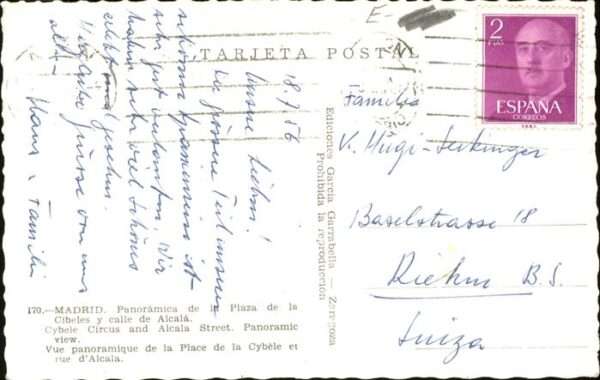 TARJETA POSTAL
2
PTAS
ESPAÑA
CORREOS
18. 7. 56
Meine Lieben!
Der grösste Teil unseres
schönen Programmes ist
sehr gut verlaufen. Wir
haben sehr viel Schönes
erlebt und gesehen.
Viele liebe Grüsse von uns
allen
Hans u. Familie
Familie
V. Hügi-
Baselstrasse 18
Riehen B. S.
Suiza
Ediciones García Garrabella — Zaragoza
Prohibida la reproducción
170.—MADRID. Panorámica de la Plaza de la
Cibeles y calle de Alcalá.
Cybele Circus and Alcala Street. Panoramic
view.
Vue panoramique de la Place de la Cybèle et
rue d'Alcala.